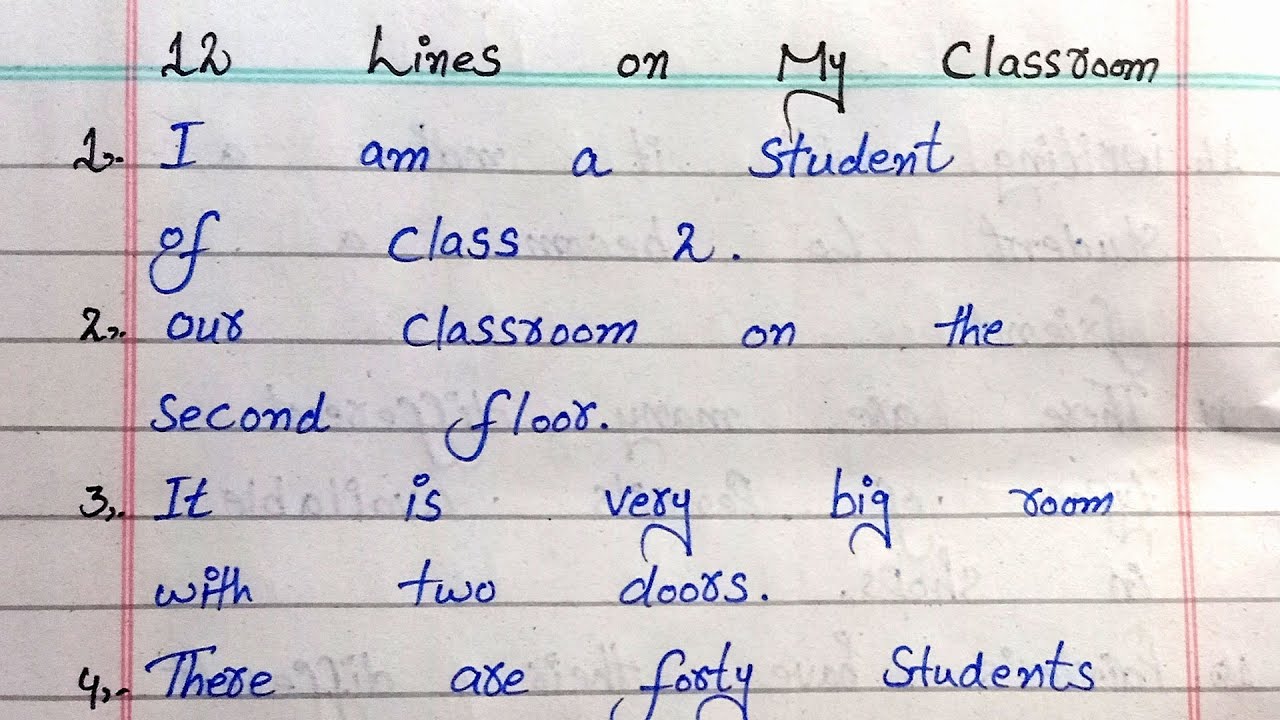 12 Lines on My Classroom
1. I am a Student
of Class 2.
2. our Classroom on the
Second floor.
3. It is very big room
with two doors.
4. There are forty Students